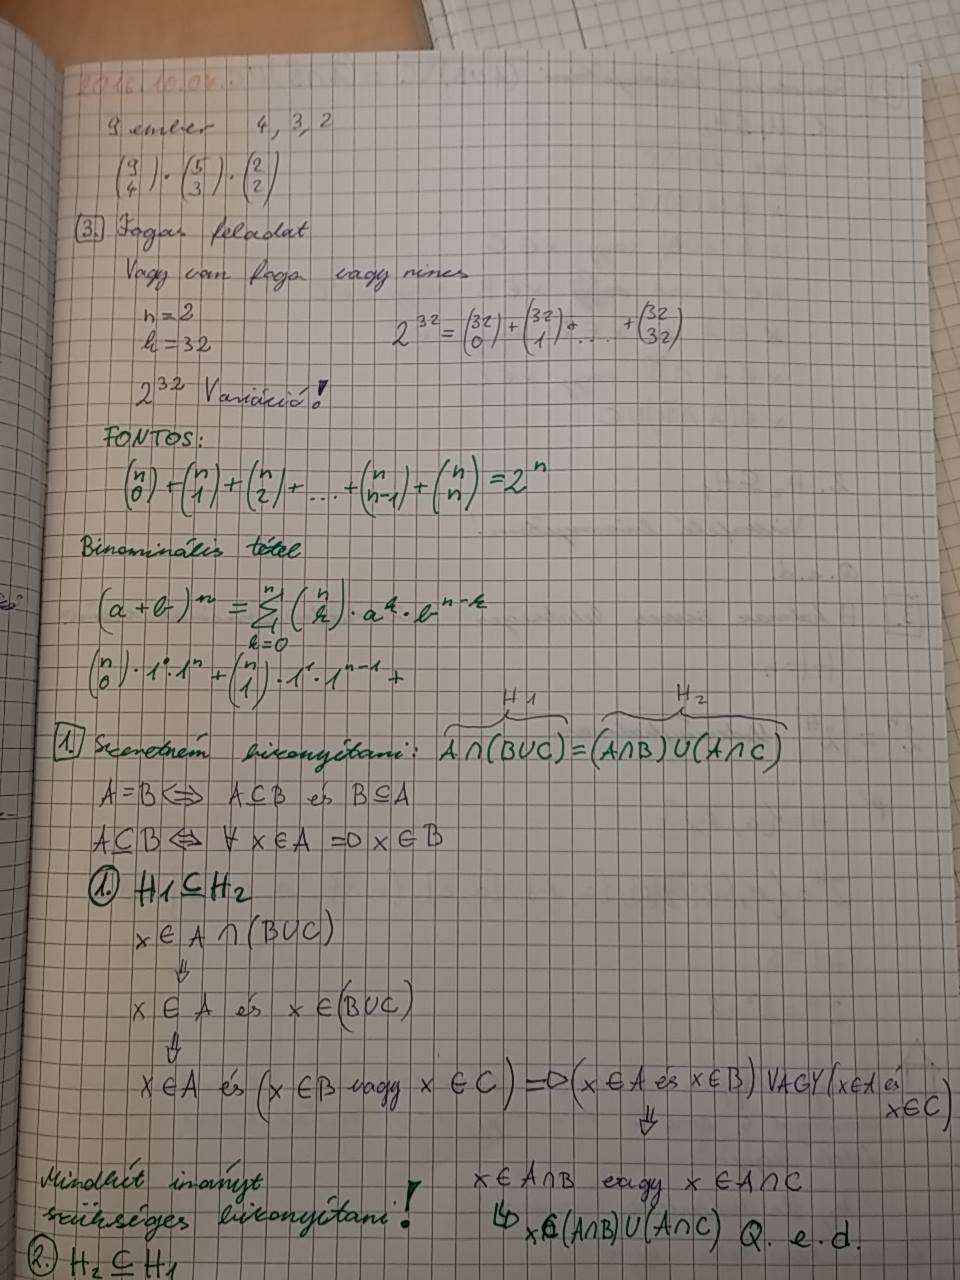 2016.10.04.
9 ember 4, 3, 2
(9 4) · (5 3) · (2 2)
3. Fogas feladat
Vagy van foga vagy nincs
n=2
k=32
2^32 = (32 0) + (32 1) + .... + (32 32)
2^32 Variáció!
FONTOS:
(n 0) + (n 1) + (n 2) + .... + (n n-1) + (n n) = 2^n
Binominális tétel
(a+b)^n = Σ_{k=0}^{n} (n k) · a^k · b^{n-k}
(n 0) · 1^0 · 1^n + (n 1) · 1^1 · 1^{n-1} +
H1 H2
1. Szeretném bizonyítani: A∩(B∪C) = (A∩B)∪(A∩C)
A=B ⇔ A⊆B és B⊆A
A⊆B ⇔ ∀ x∈A ⇒ x∈B
1. H1⊆H2
x∈A∩(B∪C)
⇓
x ∈ A és x ∈(B∪C)
⇓
x∈A és (x∈B vagy x∈C) ⇒ (x∈A és x∈B) VAGY (x∈A és x∈C)
⇓
x∈A∩B vagy x∈A∩C
⇒ x∈(A∩B)∪(A∩C) Q.e.d.
Mindkét irányt
szükséges bizonyítani!
2. H2⊆H1